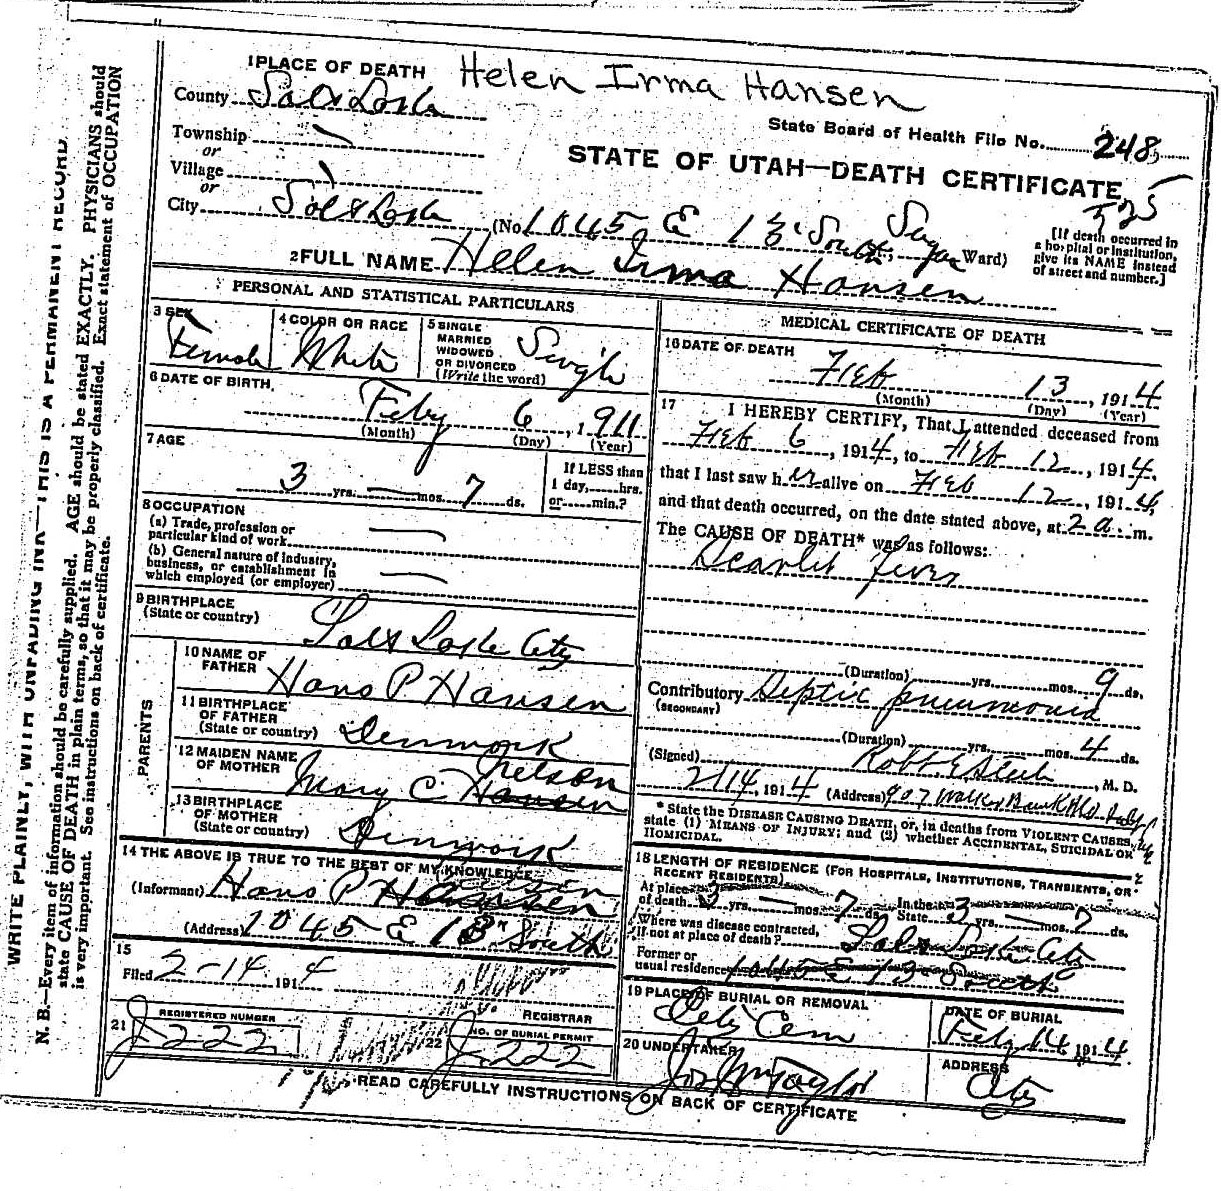 Helen Irma Hansen
1 PLACE OF DEATH
County Salt Lake
State Board of Health File No. 248
Township —
or
STATE OF UTAH—DEATH CERTIFICATE
Village
or
525
City Salt Lake (No. 1045 E 13" South, Sugar Ward)
[If death occurred in
a hospital or institution,
give its NAME instead
of street and number.]
2 FULL NAME Helen Irma Hansen
PERSONAL AND STATISTICAL PARTICULARS
3 SEX Female
4 COLOR OR RACE White
5 SINGLE
MARRIED
WIDOWED
OR DIVORCED
(Write the word) Single
6 DATE OF BIRTH
Feby 6, 1911
(Month) (Day) (Year)
7 AGE
3 yrs. — mos. 7 ds.
If LESS than
1 day,......hrs.
or......min.?
8 OCCUPATION
(a) Trade, profession or
particular kind of work —
(b) General nature of industry,
business, or establishment in
which employed (or employer) —
9 BIRTHPLACE
(State or country) Salt Lake City
PARENTS
10 NAME OF
FATHER Hans P Hansen
11 BIRTHPLACE
OF FATHER
(State or country) Denmark
12 MAIDEN NAME
OF MOTHER Mary C Hansen Nelson
13 BIRTHPLACE
OF MOTHER
(State or country) Denmark
14 THE ABOVE IS TRUE TO THE BEST OF MY KNOWLEDGE
(Informant) Hans P Hansen
(Address) 1045 E 13" South
15
Filed 2-14, 1914
REGISTRAR
21 REGISTERED NUMBER
J 222
22 NO. OF BURIAL PERMIT
J 222
MEDICAL CERTIFICATE OF DEATH
16 DATE OF DEATH
Feb 13, 1914
(Month) (Day) (Year)
17
I HEREBY CERTIFY, That I attended deceased from
Feb 6, 1914, to Feb 12, 1914,
that I last saw her alive on Feb 12, 1914,
and that death occurred, on the date stated above, at 2 a m.
The CAUSE OF DEATH* was as follows:
Scarlet Fever
(Duration) yrs. mos. 9 ds.
Contributory Septic pneumonia
(SECONDARY)
(Duration) yrs. mos. 4 ds.
(Signed) Robt, M. D.
2/14, 1914 (Address) 907 Walker Bank
* State the DISEASE CAUSING DEATH, or, in deaths from VIOLENT CAUSES,
state (1) MEANS OF INJURY; and (2) whether ACCIDENTAL, SUICIDAL OR
HOMICIDAL.
18 LENGTH OF RESIDENCE (FOR HOSPITALS, INSTITUTIONS, TRANSIENTS, OR
RECENT RESIDENTS)
At place
of death 3 yrs. — mos. 7 ds.
In the
State 3 yrs. — mos. 7 ds.
Where was disease contracted,
if not at place of death? Salt Lake City
Former or
usual residence 1045 E 13 South
19 PLACE OF BURIAL OR REMOVAL
City Cem
DATE OF BURIAL
Feby 14, 1914
20 UNDERTAKER
Jos Wm Taylor
ADDRESS
City
READ CAREFULLY INSTRUCTIONS ON BACK OF CERTIFICATE
WRITE PLAINLY, WITH UNFADING INK—THIS IS A PERMANENT RECORD.
N. B.—Every item of information should be carefully supplied. AGE should be stated EXACTLY. PHYSICIANS should
state CAUSE OF DEATH in plain terms, so that it may be properly classified. Exact statement of OCCUPATION
is very important. See instructions on back of certificate.